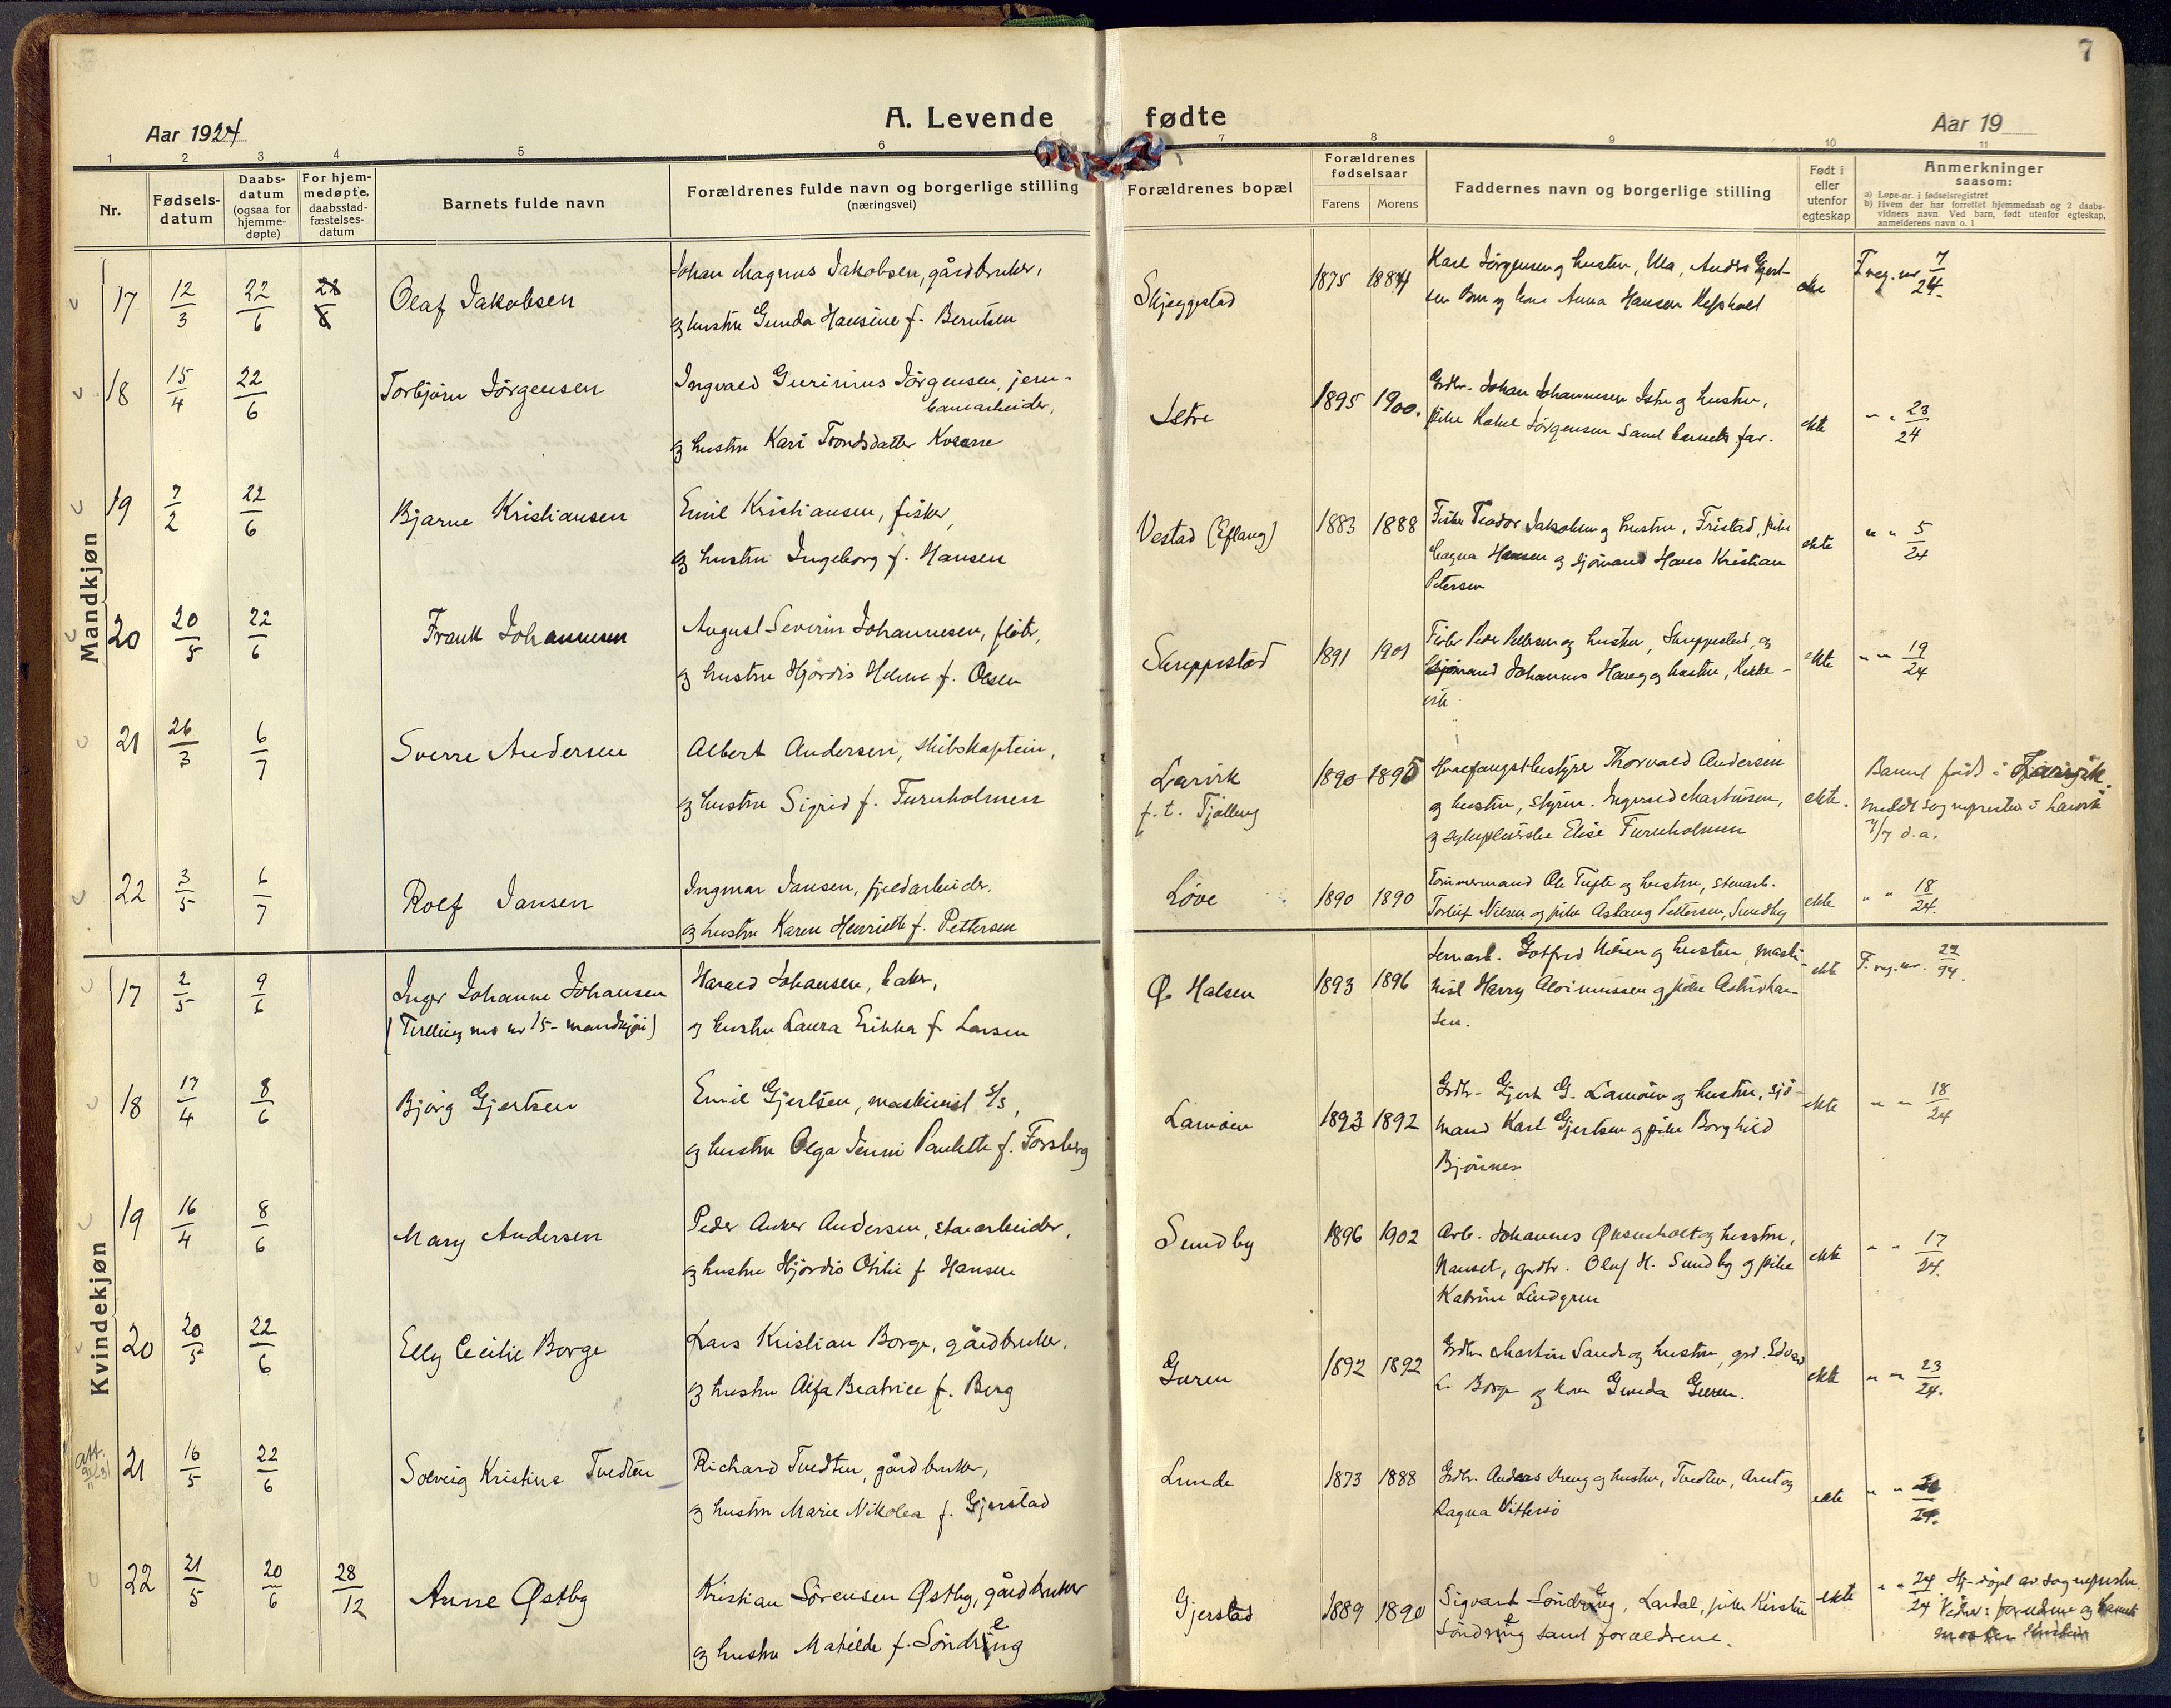 7
Aar 1924
A. Levende fødte
Aar 19
1 2 3 4 5 6 7 8 9 10 11
Nr.
Fødsels-
datum
Daabs-
datum
(ogsaa for
hjemme-
døpte)
For hjem-
medøpte,
daabsstad-
fæstelses-
datum
Barnets fulde navn
Forældrenes fulde navn og borgerlige stilling
(næringsvei)
Forældrenes bopæl
Forældrenes
fødselsaar
Farens Morens
Faddernes navn og borgerlige stilling
Født i
eller
utenfor
egteskap
Anmerkninger
saasom:
a) Løpe-nr. i fødselsregistret
b) Hvem der har forrettet hjemmedaab og 2 daabs-
vidners navn. Ved barn, født utenfor egteskap,
anmelderens navn o. l
Mandkjøn
17 12/3 22/6 Olaf Jakobsen
Johan Magnus Jakobsen, gårdbruker,
og hustru Gunda Hansine f. Berntsen
Skjeggestad 1875 1884
Karl Jörgensen og hustru, Ula, Anders Gjert-
sen Bra og kone Anna Hansen
ekte F. reg. nr 7/24.
18 15/4 22/6 Torbjörn Jörgensen
Ingvald Gurinius Jörgensen, jern-
banearbeider,
og hustru Kari Trondsdatter Kvarne
Istre 1895 1900.
Grdbr. Johan Johannesen Istre og hustru,
pike Jörgensen samt barnets far.
ekte " " 23/24
19 7/2 22/6 Bjarne Kristiansen
Emil Kristiansen, fisker,
og hustru Ingeborg f. Hansen
Vestad (Eflang) 1883 1888
Fisker Teodor Jakobsen og hustru, Fristad, pike
Magna Hansen og sjömand Hans Kristian
Petersen
ekte " " 5/24
20 20/5 22/6 Frank Johannesen
August Severin Johannesen,
og hustru Hjördis Helene f. Olsen
Skuppestad 1891 1901
Peder Pettersen og hustru, Skuppestad, og
Sjömand Johannes Haug og hustru,
ekte " " 19/24
21 26/3 6/7 Sverre Andersen
Albert Andersen, skibskaptein,
og hustru Sigrid f. Furuholmen
Larvik
f. t. Tjölling
1890 1895
Hvalfangstbestyrer Thorvald Andersen
og hustru, styrm. Ingvald Martinsen,
og sykepleierske Elise Furuholmen
ekte.
Barnet födt i Larvik.
Meldt sognepresten i Larvik
7/7 d.a.
22 3/5 6/7 Rolf Jansen
Ingmar Jansen, fjeldarbeider,
og hustru Karen Henriette f. Pettersen
Löve 1890 1890
Tömmermand Ole Tufte og hustru, stenarb.
Torleif Nilsen og pike Aslaug Pettersen, Sundby
ekte " " 18/24.
Kvindekjøn
17 2/5 9/6 Inger Johanne Johansen
(Tvilling mo nr 15 - mandkjøn)
Harald Johansen, baker,
og hustru Laura Erikka f. Larsen
Ø. Halsen 1893 1896
Jernarb. Gotfred Nilsen og hustru, maski-
nist Harry og pike Astrid Han-
sen.
ekte F. reg. nr.
18 17/4 8/6 Bjørg Gjertsen
Emil Gjertsen, maskinist s/s,
og hustru Olga Jenni Paulette f. Forsberg
Lamøen 1893 1892
Grdbr. Gjert G. Lamøen og hustru, sjö-
mand Karl Gjertsen og pike Borghild
Bjønnes
ekte " " 18/24
19 16/4 8/6 Mary Andersen
Peder Anker Andersen, stenarbeider,
og hustru Hjördis Otilie f. Hansen
Sundby 1896 1902
Arb. Johannes Øksenholt og hustru,
Nanset, grdbr. Olaf H. Sundby og pike
Katrine Lindgren
ekte " " 17/24.
20 20/5 22/6 Elly Cecilie Borge
Lars Kristian Borge, gårdbruker,
og hustru Alfa Beatrice f. Berg
Guren 1892 1892
Grdbr. Martin Sande og hustru, grd. Edvard
L. Borge og kone Gunda Guren.
ekte " " 23/24.
21 16/5 22/6 Solveig Kristine Tvedten
Richard Tvedten, gårdbruker,
og hustru Marie Nikolea f. Gjerstad
Lunde 1873 1888
Grdbr. Andreas Kreng og hustru, Tvedten, Arnt og
Ragna Vittersö
ekte " "
22 21/5 20/6 28/12 Anne Østby
Kristian Sörensen Østby, gårdbruker
og hustru Matilde f. Söndreng
Gjerstad 1889 1890
Sigvart Söndreng, Lardal, pike Kirstin
Söndreng samt forældrene.
ekte " " 24/24 Hj-döpt av sogneprsten.
Vidner: forældrene og